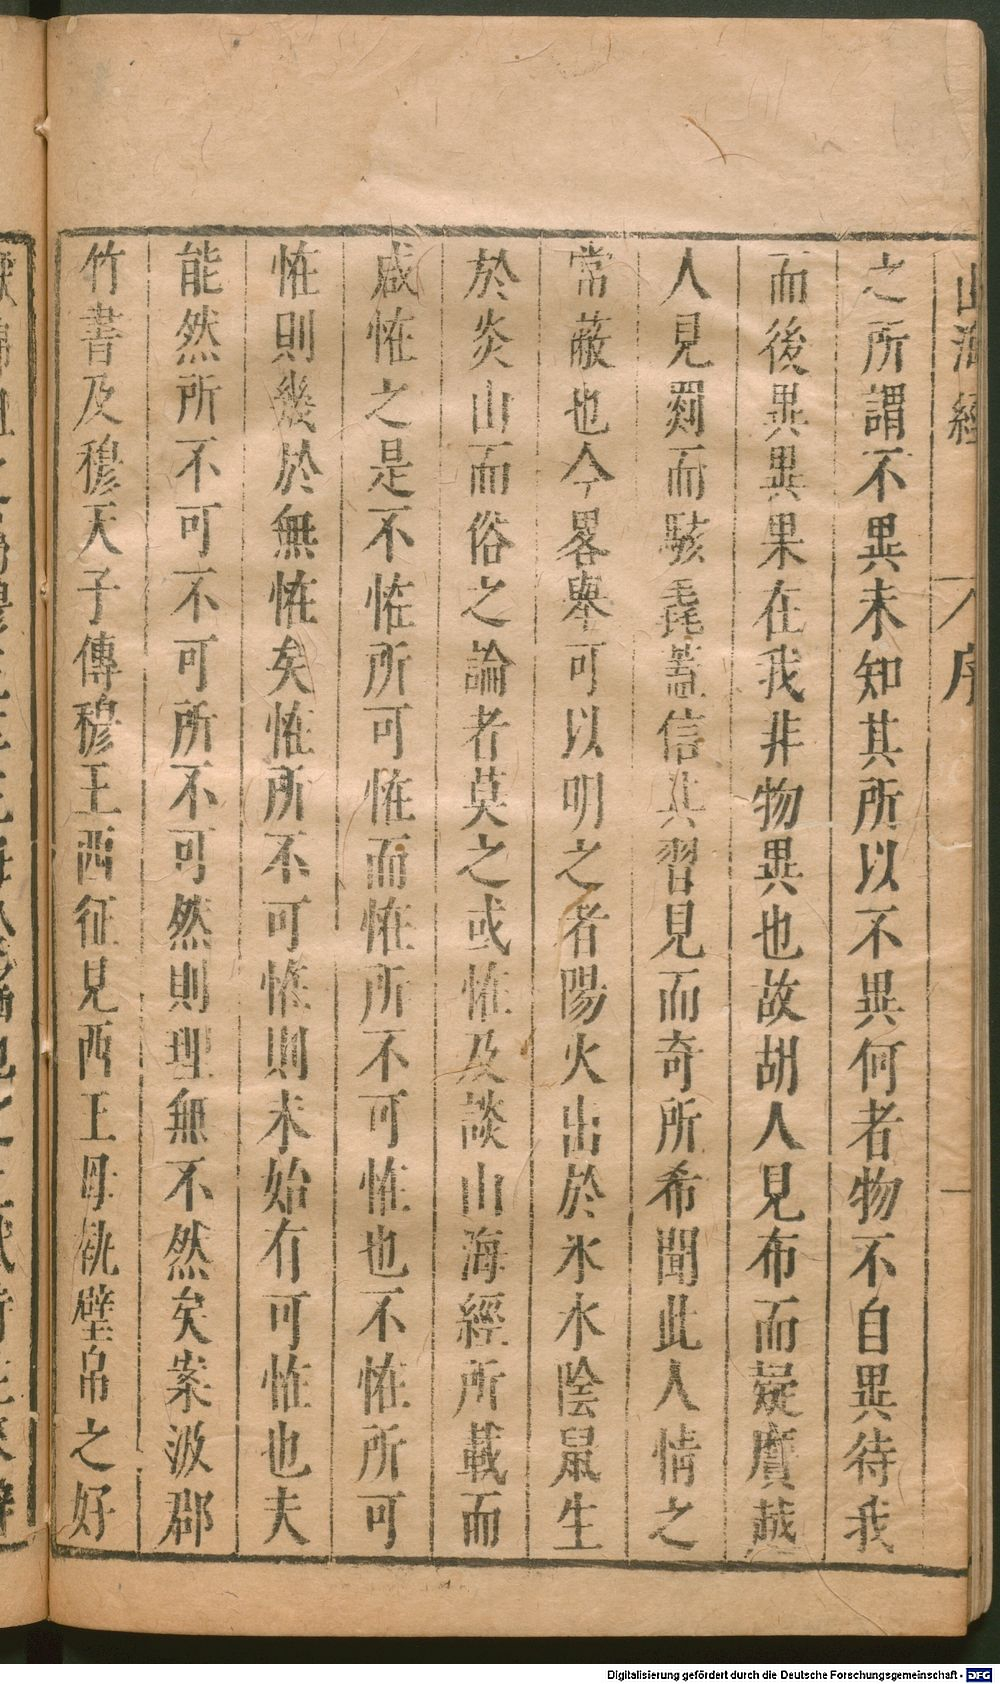 山海經 序 一
之所謂不異未知其所以不異何者物不自異待我
而後異異果在我非物異也故胡人見布而疑黂越
人見罽而駭毳蓋信其習見而奇所希聞此人情之
常蔽也今畧舉可以明之者陽火出於氷水陰鼠生
於炎山而俗之論者莫之或恠及談山海經所載而
咸恠之是不恠所可恠而恠所不可恠也不恠所可
恠則幾於無恠矣恠所不可恠則未始有可恠也夫
能然所不可不可所不可然則理無不然矣案汲郡
竹書及穆天子傳穆王西征見西王母執璧帛之好
Digitalisierung gefördert durch die Deutsche Forschungsgemeinschaft - DFG